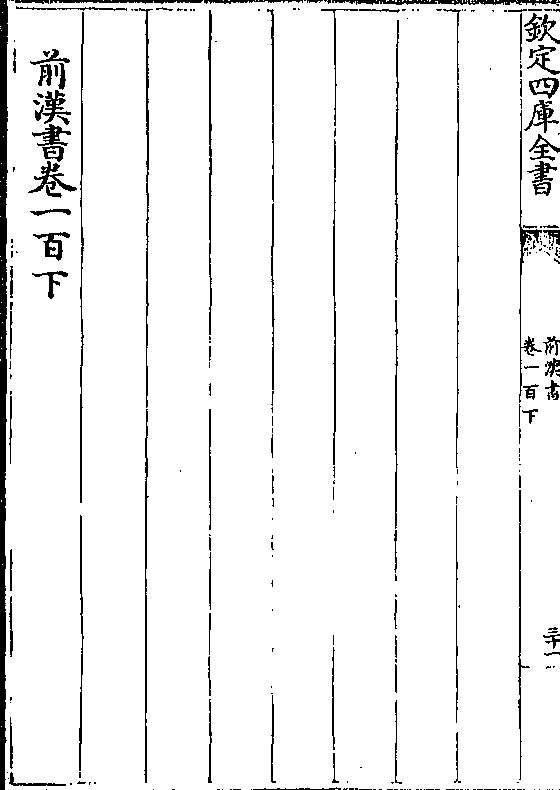 欽定四庫全書
前漢書
卷一百下
三十一
前漢書卷一百下